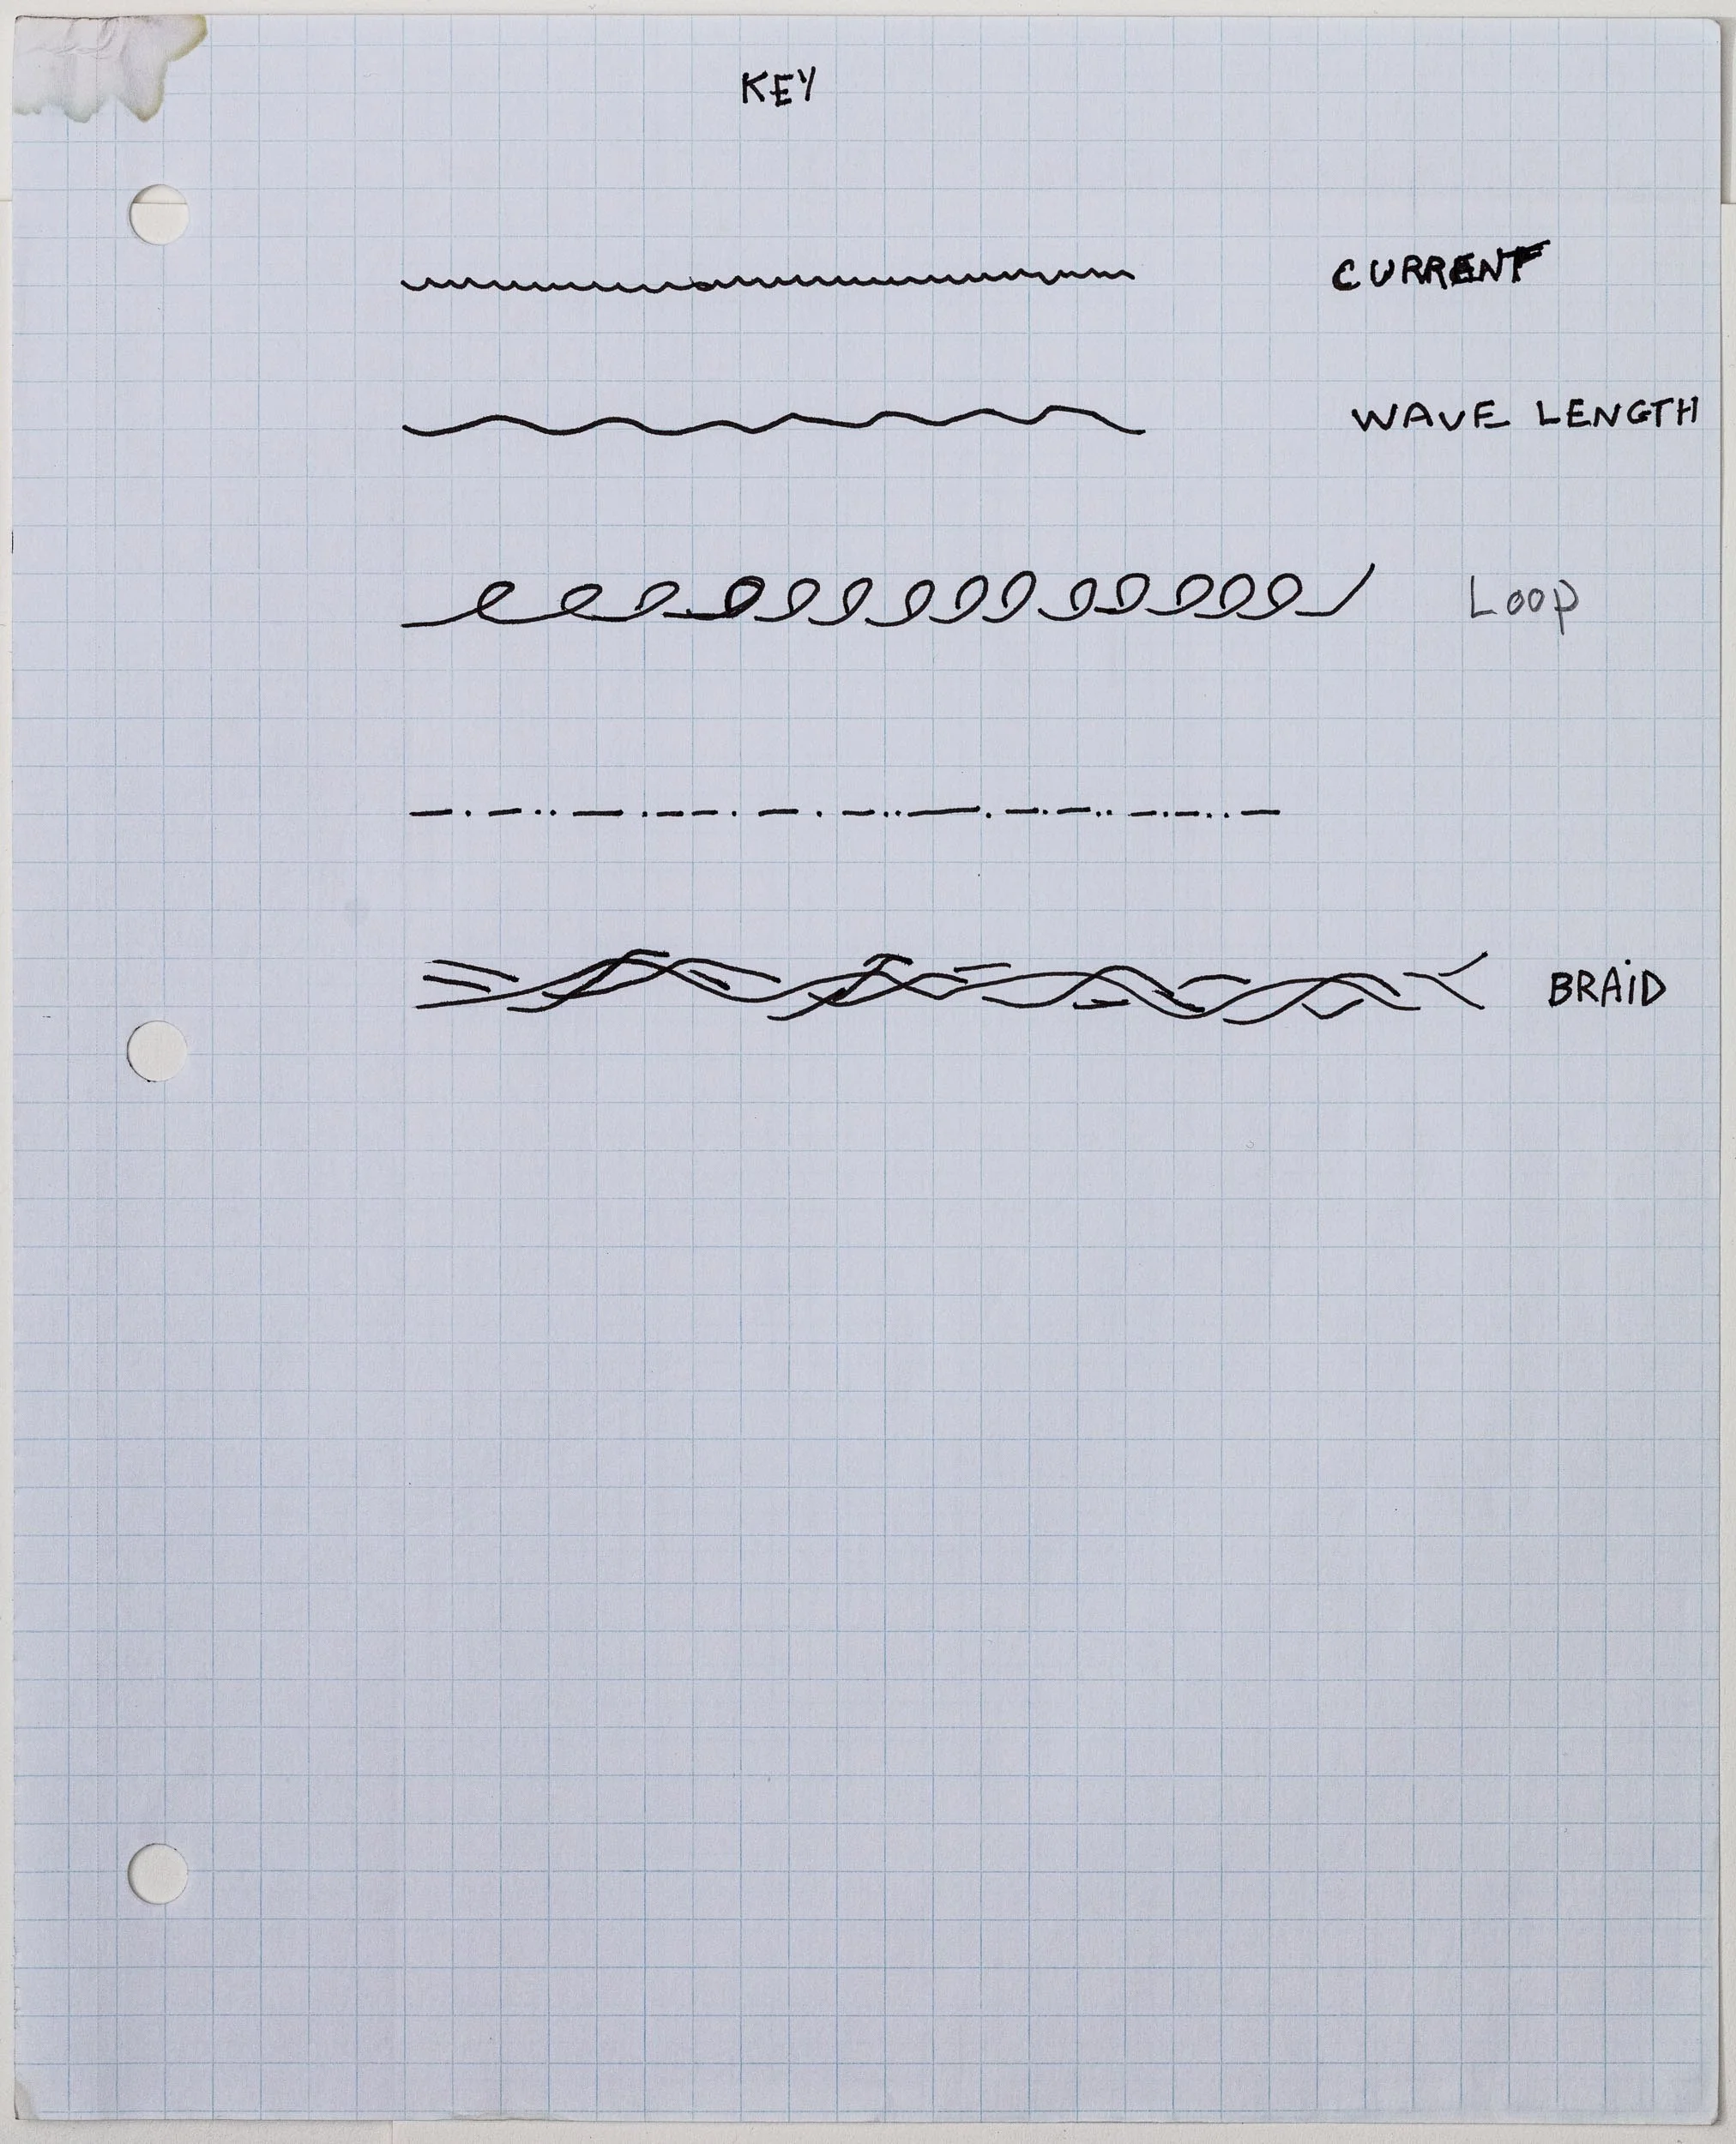 KEY
CURRENT
WAVE LENGTH
Loop
BRAiD